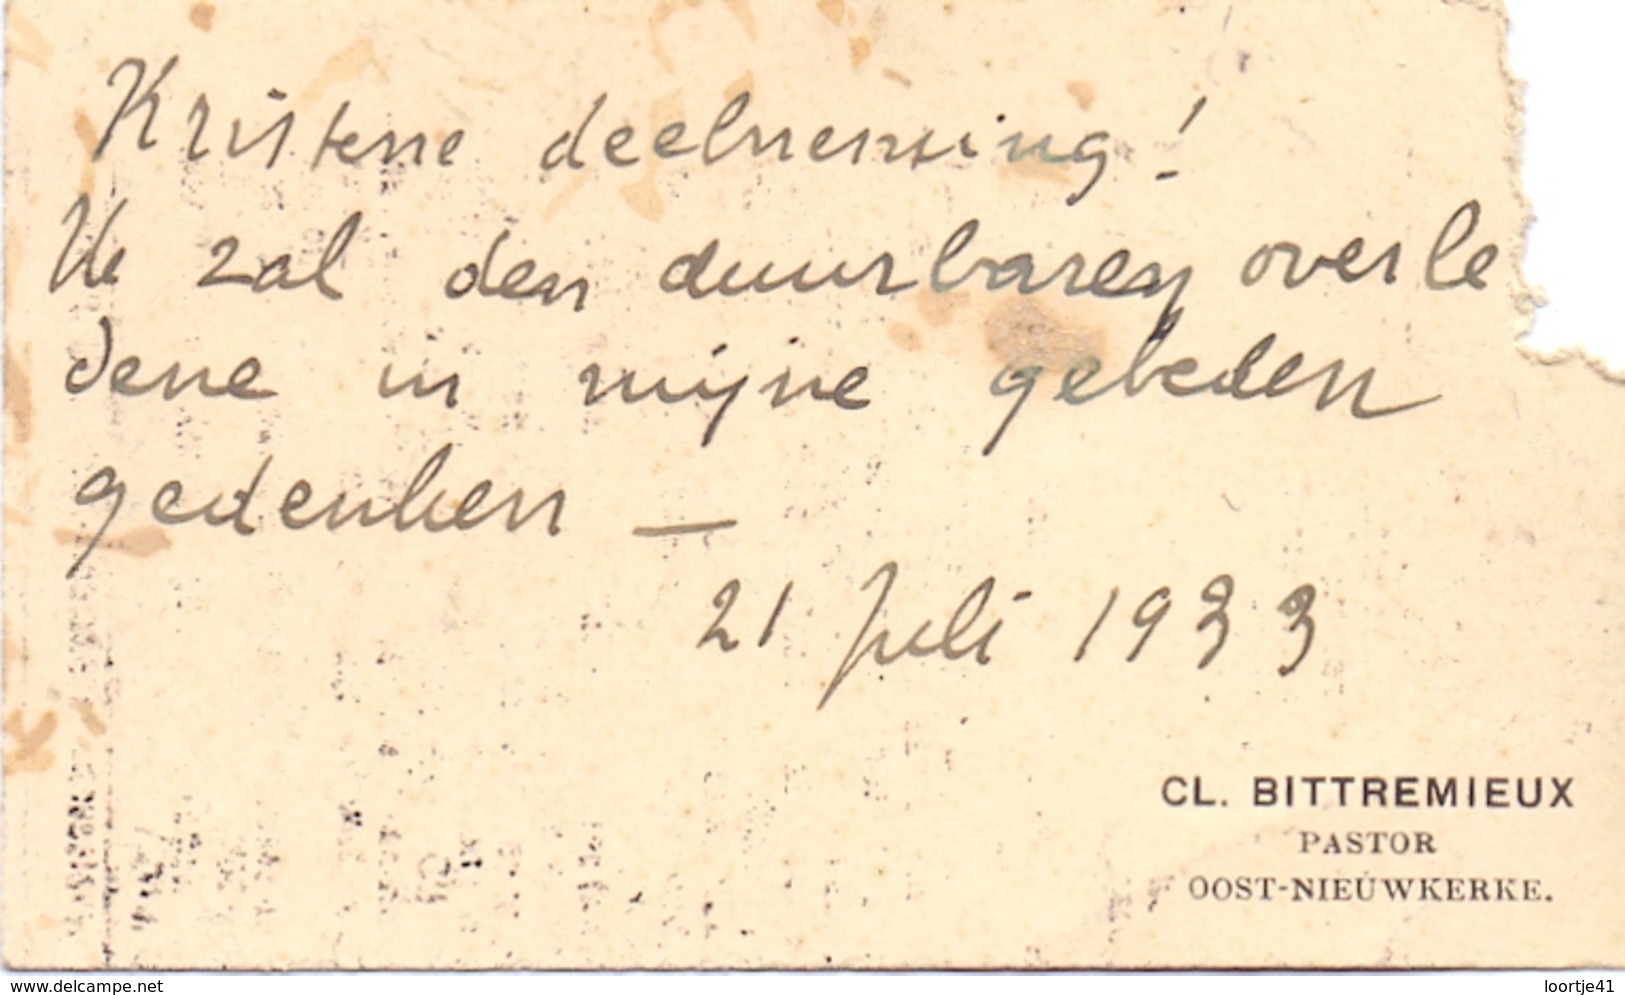 Kristene deelneming!
Ik zal den duurbaren overle
dene in mijne gebeden
gedenken —
21 Juli 1933
CL. BITTREMIEUX
PASTOR
OOST-NIEUWKERKE.
www.delcampe.net
loortje41